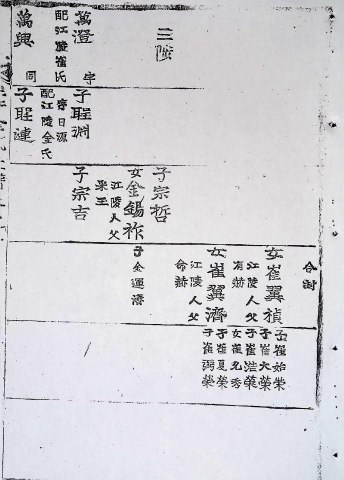 三陟
萬澄
字
配江陵崔氏
萬興
同
子淵
字日源
配江陵金氏
子連
子宗哲
女金錫祚
江陵人父
子宗吉
女崔翼禎
江陵人父
女崔翼濟
江陵人父
命赫
子金運濟
子崔始榮
子崔大榮
子崔榮
女崔秀
子崔夏榮
子崔弼榮